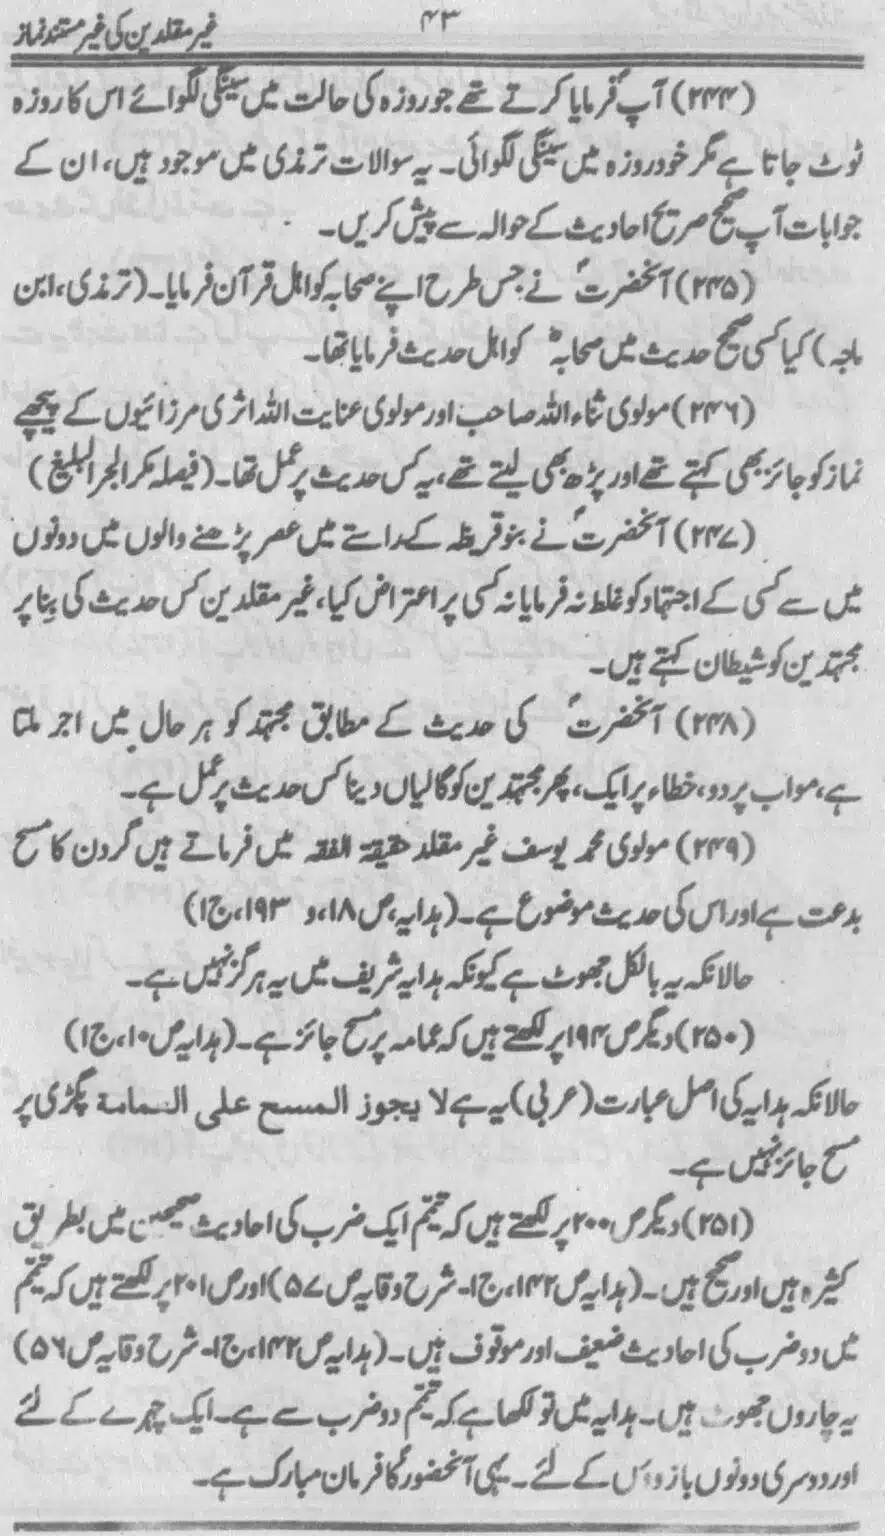 ۴۳
غیر مقلدین کی غیر مستند نماز
(۲۴۴) آپؐ فرمایا کرتے تھے جو روزہ کی حالت میں سینگی لگوائے اس کا روزہ
ٹوٹ جاتا ہے مگر خود روزہ میں سینگی لگوائی۔ یہ سوالات ترمذی میں موجود ہیں، ان کے
جوابات آپ صحیح صریح احادیث کے حوالہ سے پیش کریں۔
(۲۴۵) آنحضرتؐ نے جس طرح اپنے صحابہ کو اہل قرآن فرمایا۔ (ترمذی، ابن
ماجہ) کیا کسی صحیح حدیث میں صحابہؓ کو اہل حدیث فرمایا تھا۔
(۲۴۶) مولوی ثناء اللہ صاحب اور مولوی عنایت اللہ اثری مرزائیوں کے پیچھے
نماز کو جائز بھی کہتے تھے اور پڑھ بھی لیتے تھے، یہ کس حدیث پر عمل تھا۔ (فیصلہ مکہ الجرالبلیغ)
(۲۴۷) آنحضرتؐ نے بنو قریظہ کے راستے میں عصر پڑھنے والوں میں دونوں
میں سے کسی کے اجتہاد کو غلط نہ فرمایا نہ کسی پر اعتراض کیا، غیر مقلدین کس حدیث کی بنا پر
مجتہدین کو شیطان کہتے ہیں۔
(۲۴۸) آنحضرتؐ کی حدیث کے مطابق مجتہد کو ہر حال میں اجر ملتا
ہے، صواب پر دو، خطاء پر ایک، پھر مجتہدین کو گالیاں دینا کس حدیث پر عمل ہے۔
(۲۴۹) مولوی محمد یوسف غیر مقلد حقیقۃ الفقہ میں فرماتے ہیں گردن کا مسح
بدعت ہے اور اس کی حدیث موضوع ہے۔ (ہدایہ، ص ۱۸، و ۱۹۳، ج۱)
حالانکہ یہ بالکل جھوٹ ہے کیونکہ ہدایہ شریف میں یہ ہرگز نہیں ہے۔
(۲۵۰) دیگر ص ۱۹۴ پر لکھتے ہیں کہ عمامہ پر مسح جائز ہے۔ (ہدایہ ص ۱۰، ج۱)
حالانکہ ہدایہ کی اصل عبارت (عربی) یہ ہے لا یجوز المسح علی العمامة پگڑی پر
مسح جائز نہیں ہے۔
(۲۵۱) دیگر ص ۲۰۰ پر لکھتے ہیں کہ تیمّم ایک ضرب کی احادیث صحیحین میں بطریق
کثیرہ ہیں اور صحیح ہیں۔ (ہدایہ ص ۱۴۲، ج۱۔ شرح وقایہ ص ۵۷) اور ص ۲۰۱ پر لکھتے ہیں کہ تیمّم
میں دو ضرب کی احادیث ضعیف اور موقوف ہیں۔ (ہدایہ ص ۱۴۲، ج۱۔ شرح وقایہ ص ۵۶)
یہ چاروں جھوٹ ہیں۔ ہدایہ میں تو لکھا ہے کہ تیمّم دو ضرب سے ہے۔ ایک چہرے کے لئے
اور دوسری دونوں بازوؤں کے لئے۔ یہی آنحضورؐ کا فرمان مبارک ہے۔